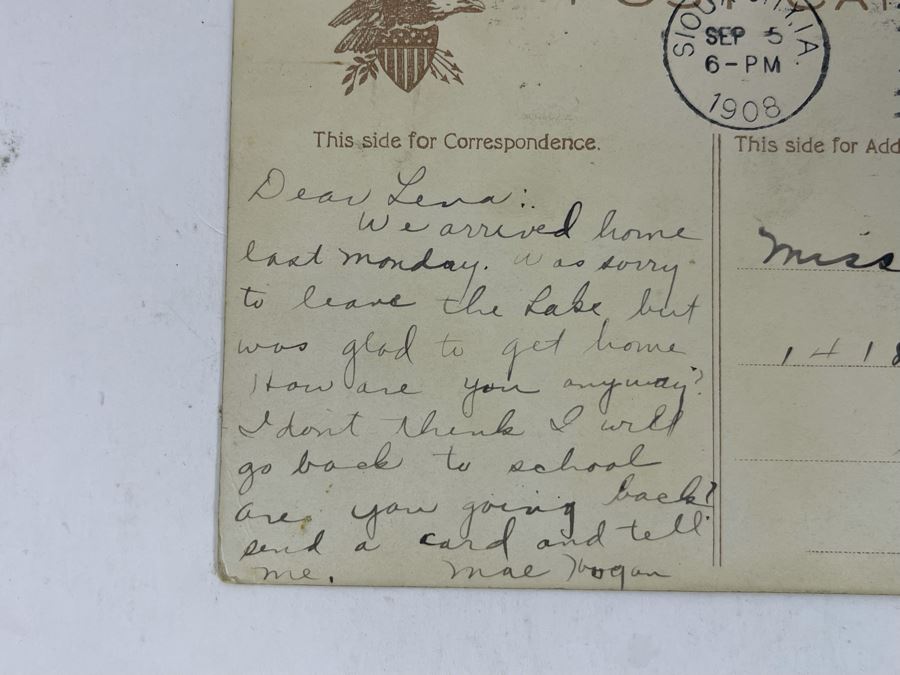 POST CA
SIOUX CITY, IA.
SEP 5
6-PM
1908
This side for Correspondence.
This side for Add
Dear Lena:
We arrived home
last monday. Was sorry
to leave the Lake but
was glad to get home
How are you anyway?
I dont think I will
go back to school
are you going back?
send a card and tell
me. Mae Hogan
Miss
1418